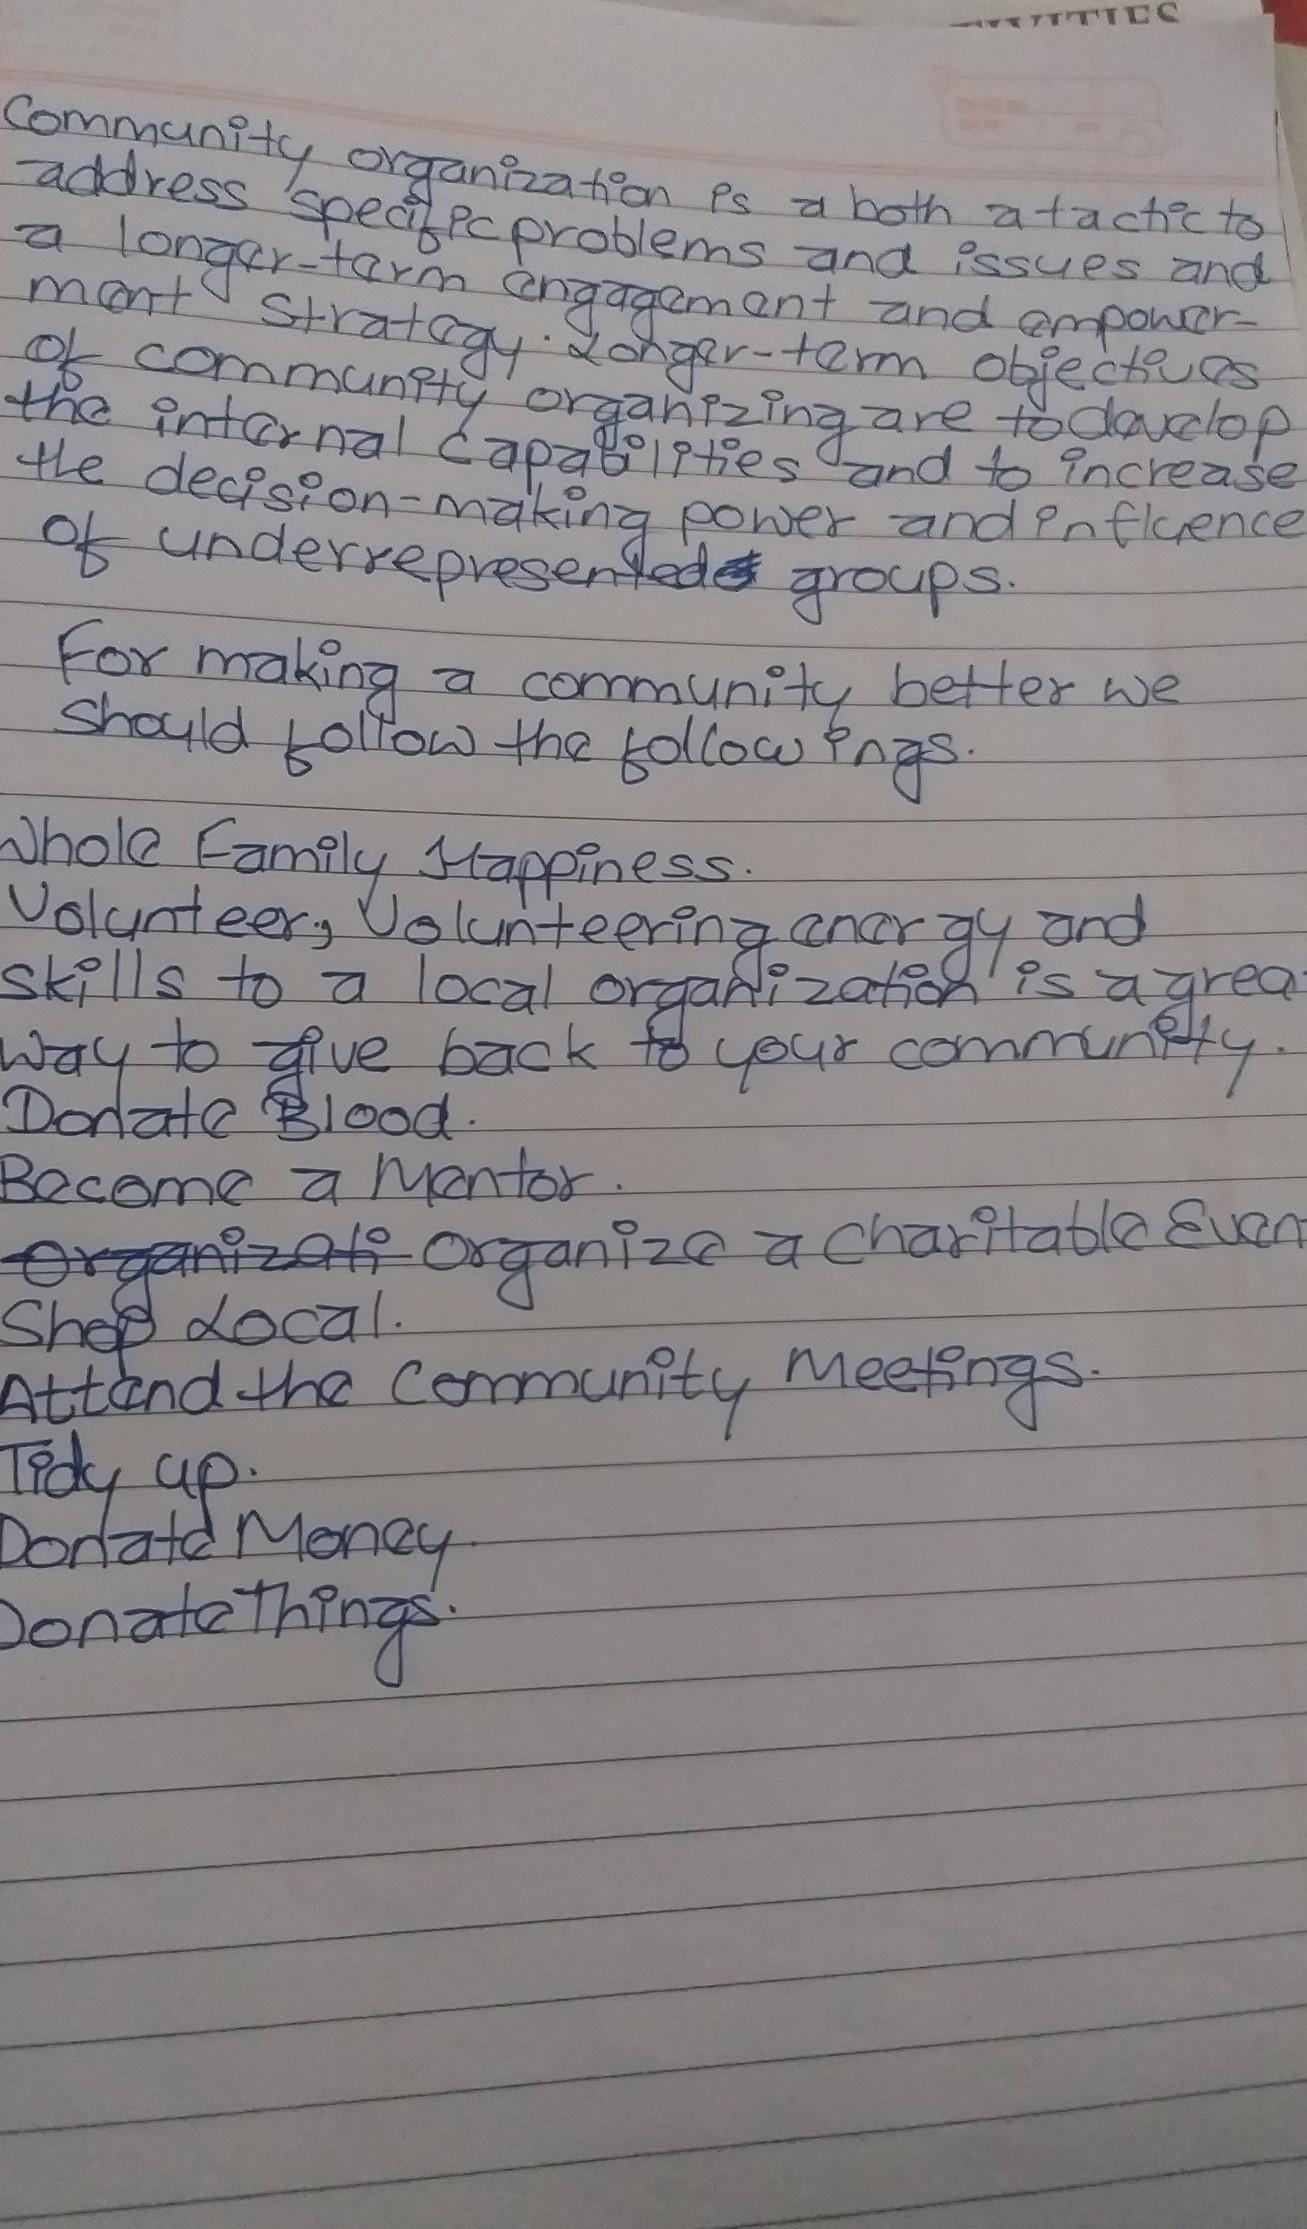 Community organization is a both a tactic to
address specific problems and issues and
a longer-term engagement and empower-
ment strategy. Longer-term objectives
of community organizing are to develop
the internal capabilities and to increase
the decision-making power and influence
of underrepresented groups.
For making a community better we
should follow the followings.
Whole Family Happiness.
Volunteer, Volunteering energy and
skills to a local organization is a grea
way to give back to your community.
Donate Blood.
Become a Mentor.
Organizati Organize a Charitable Even
Shop Local.
Attend the Community Meetings.
Tidy up.
Donate Money.
Donate Things.